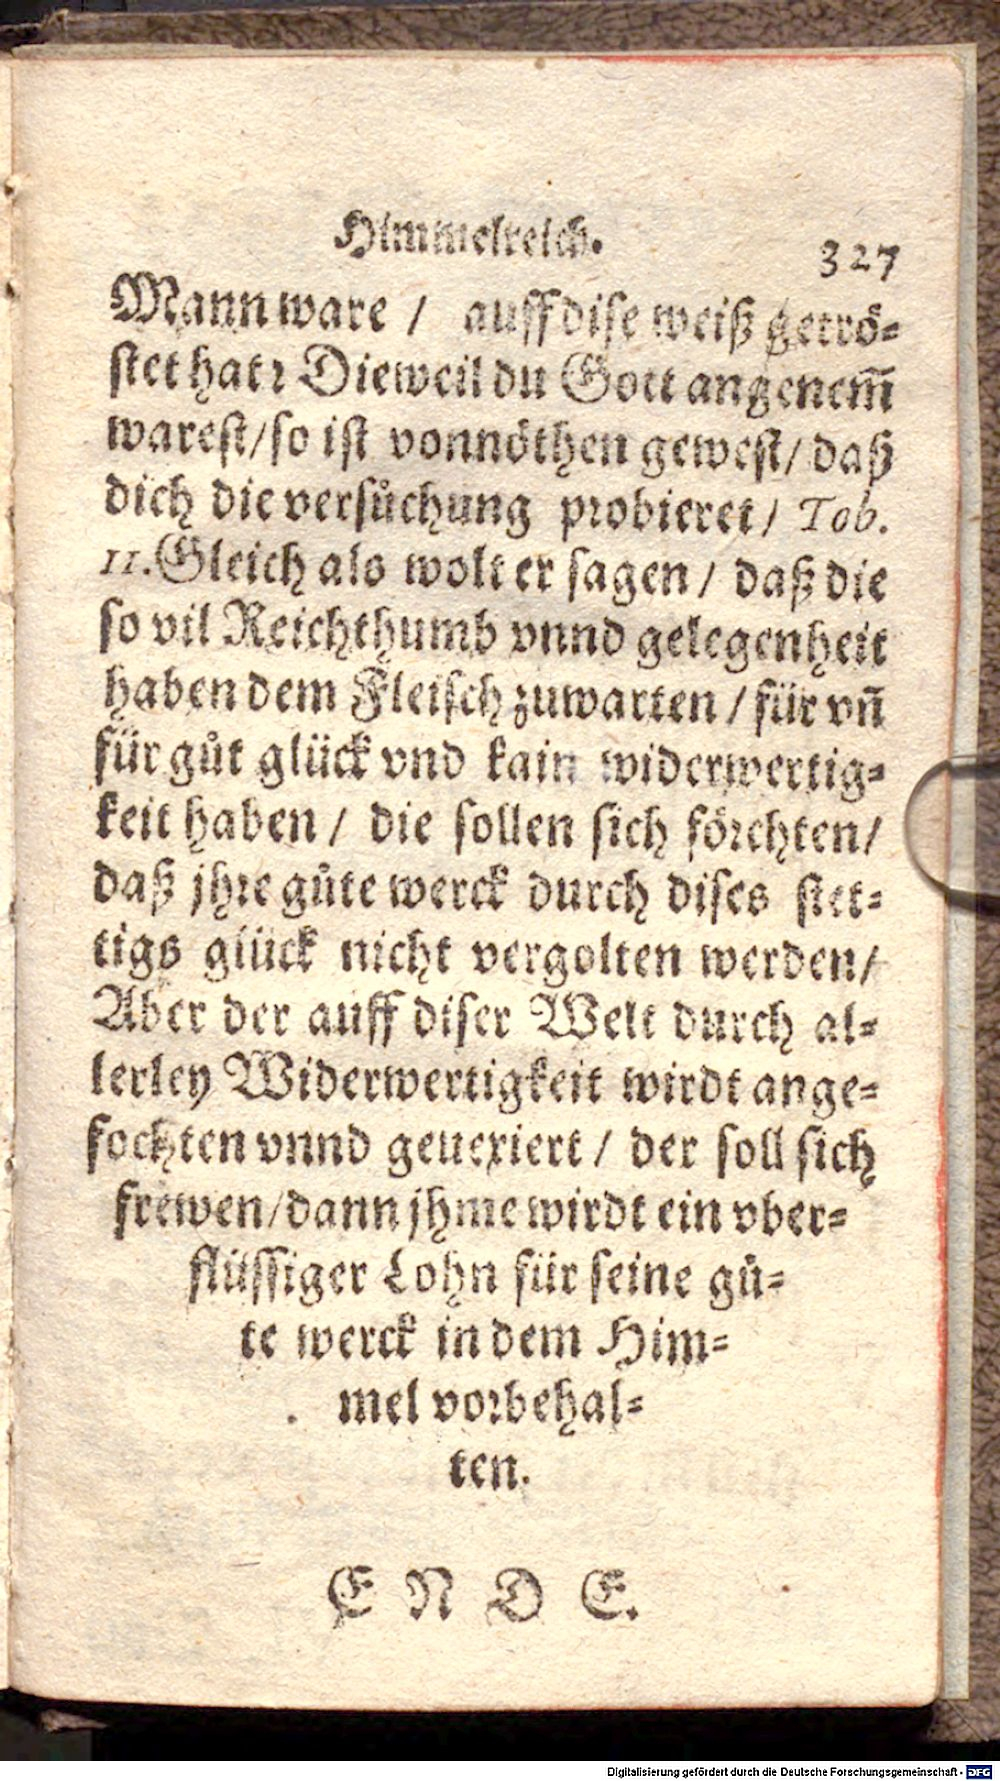 Himmelreich.
327
Mann ware / auff dise weiß getrö-
stet hat? Dieweil du Gott angenem̃
warest/so ist vonnöthen gewest/ daß
dich die versůchung probieret/ Tob.
11. Gleich als wolt er sagen / daß die
so vil Reichthumb vnnd gelegenheit
haben dem Fleisch zuwarten / für vñ
für gůt glück vnd kain widerwertig-
keit haben / die sollen sich förchten/
daß jhre gůte werck durch dises stet-
tigs glück nicht vergolten werden/
Aber der auff diser Welt durch al-
lerley Widerwertigkeit wirdt ange-
fochten vnnd geuexiert / der soll sich
frewen/dann jhme wirdt ein vber-
flüssiger Lohn für seine gů-
te werck in dem Him-
mel vorbehal-
ten.
E N D E.
Digitalisierung gefördert durch die Deutsche Forschungsgemeinschaft - DFG